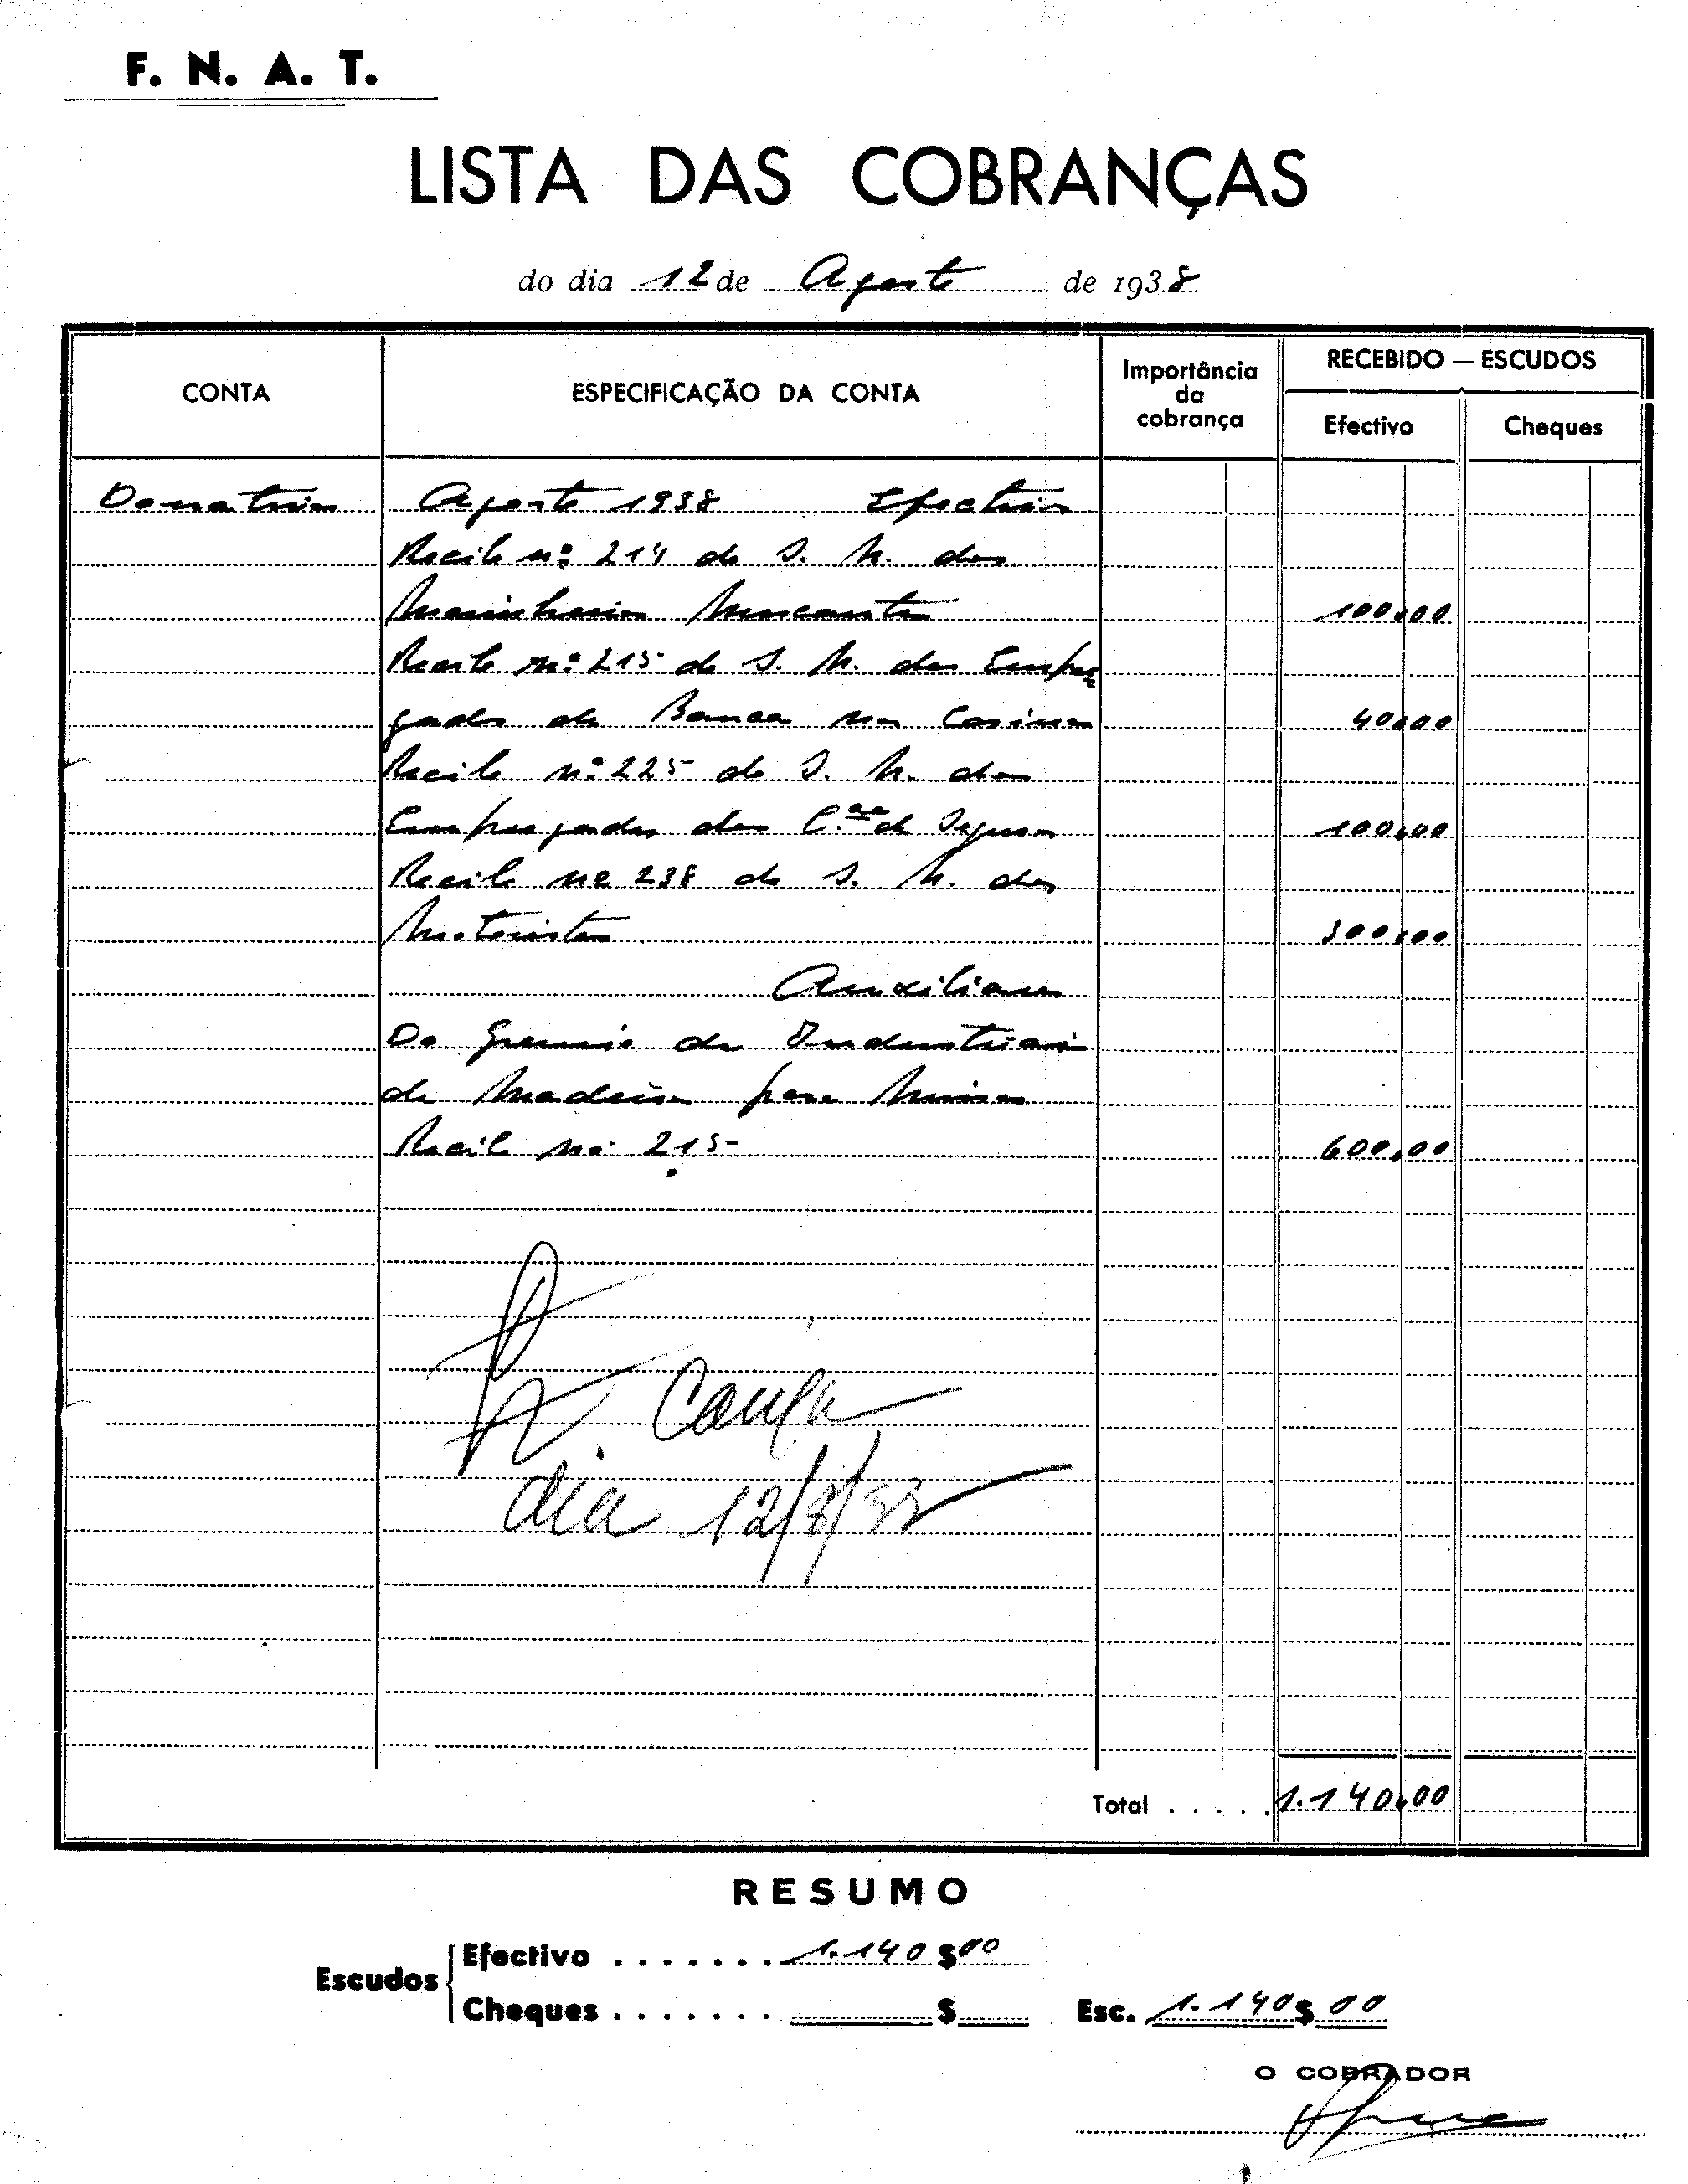 F. N. A. T.
LISTA DAS COBRANÇAS
do dia 12 de Agosto de 1938
CONTA
ESPECIFICAÇÃO DA CONTA
Importância
da
cobrança
RECEBIDO — ESCUDOS
Efectivo
Cheques
Agosto 1938 Efectivos
Recibo nº 214 do S. N. dos
Marinheiros Mercantes 100,00
Recibo nº 215 do S. N. dos Empre
gados de Banca nos Casinos 40,00
Recibo nº 225 do S. N. dos
Empregados das C.as de Seguros 100,00
Recibo nº 238 do S. N. dos
Motoristas 300,00
Auxiliares
Do Gremio dos Industriais
de Madeiras para Minas
Recibo nº 215 600,00
dia 12/8/38
Total . . . . . 1.140,00
RESUMO
Escudos
Efectivo . . . . . . . 1.140 $ 00
Cheques . . . . . . . $
Esc. 1.140 $ 00
O COBRADOR